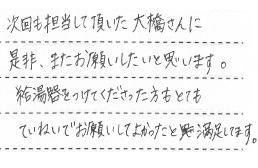 次回も担当して頂いた大橋さんに
是非、またお願いしたいと思います。
給湯器をつけてくださった方もとても
ていねいでお願いしてよかったと満足してます。